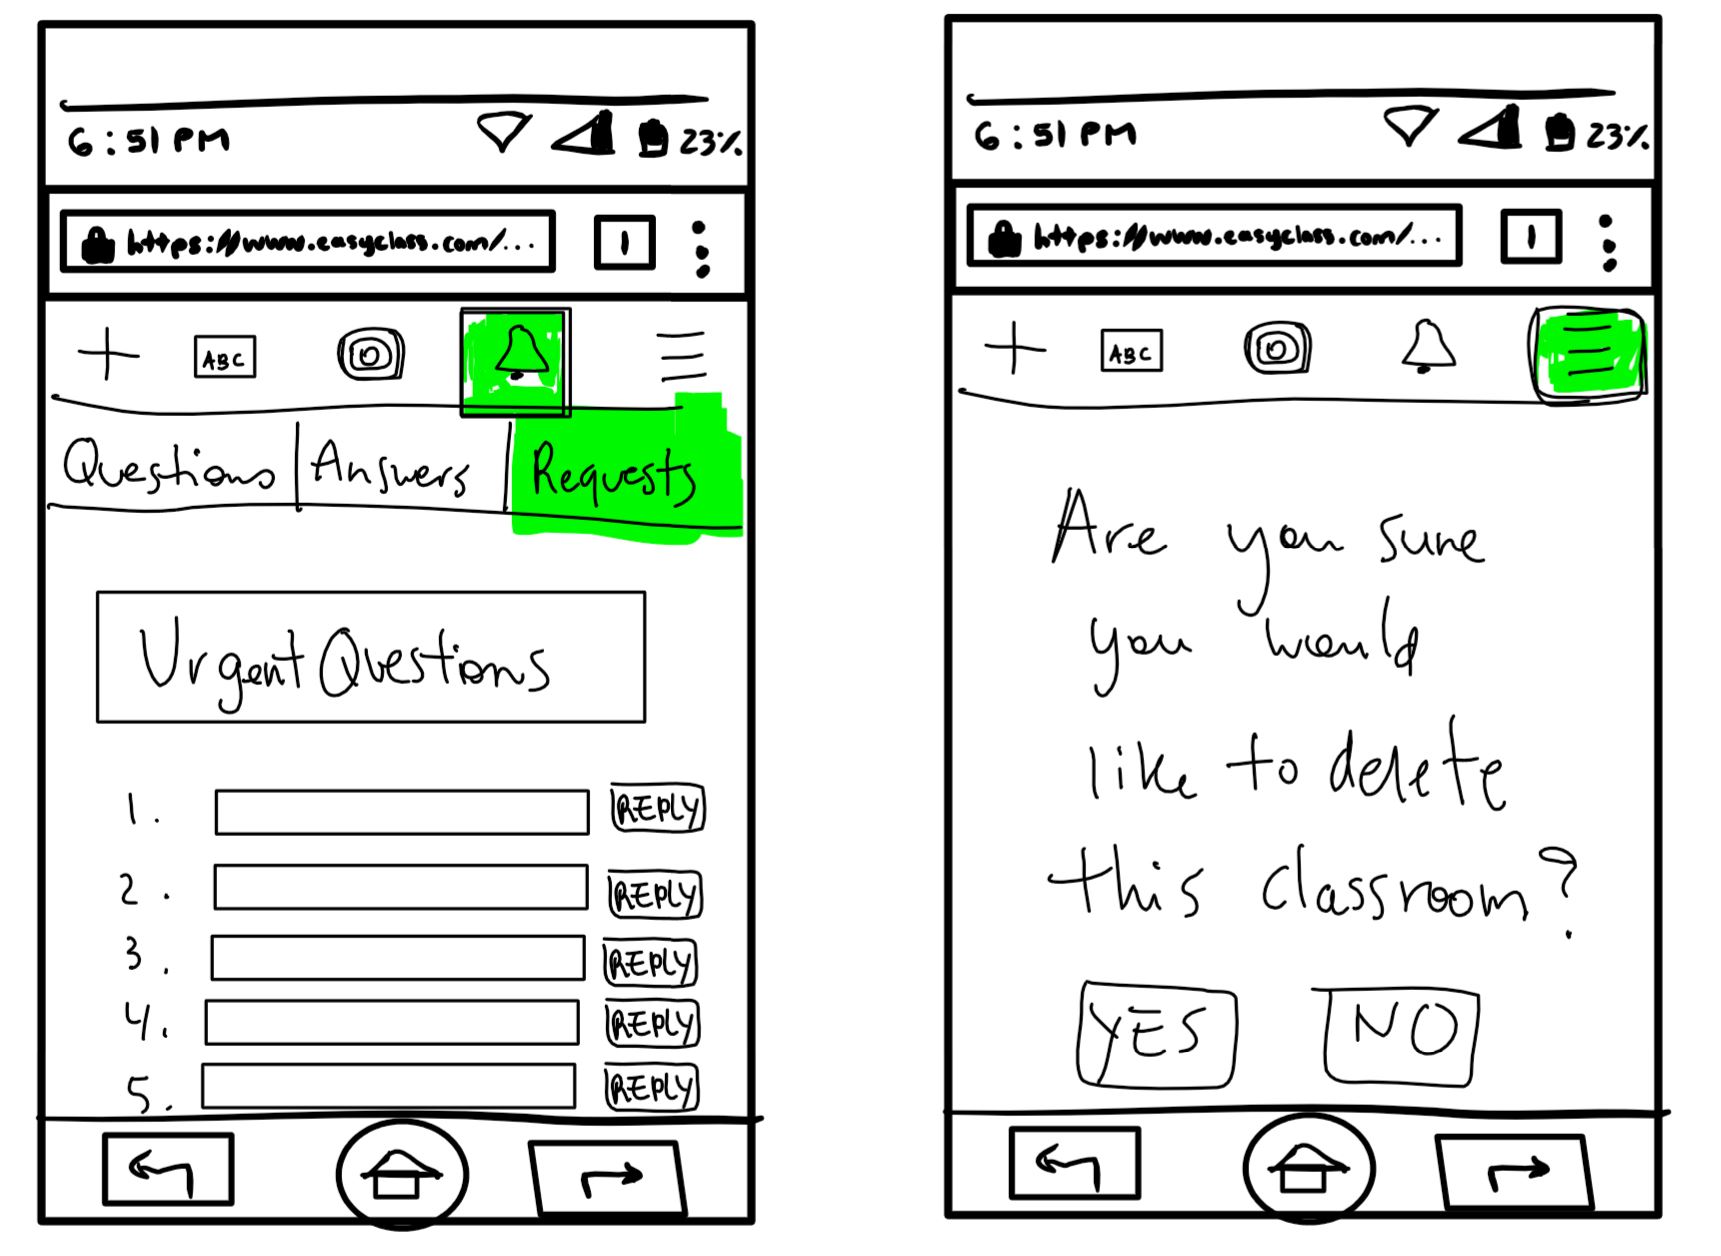 6:51 PM 23%
https://www.easyclass.com/... 1
ABC
Questions Answers Requests
Urgent Questions
1. REPLY
2. REPLY
3. REPLY
4. REPLY
5. REPLY
6:51 PM 23%
https://www.easyclass.com/... 1
ABC
Are you sure
you would
like to delete
this classroom?
YES NO